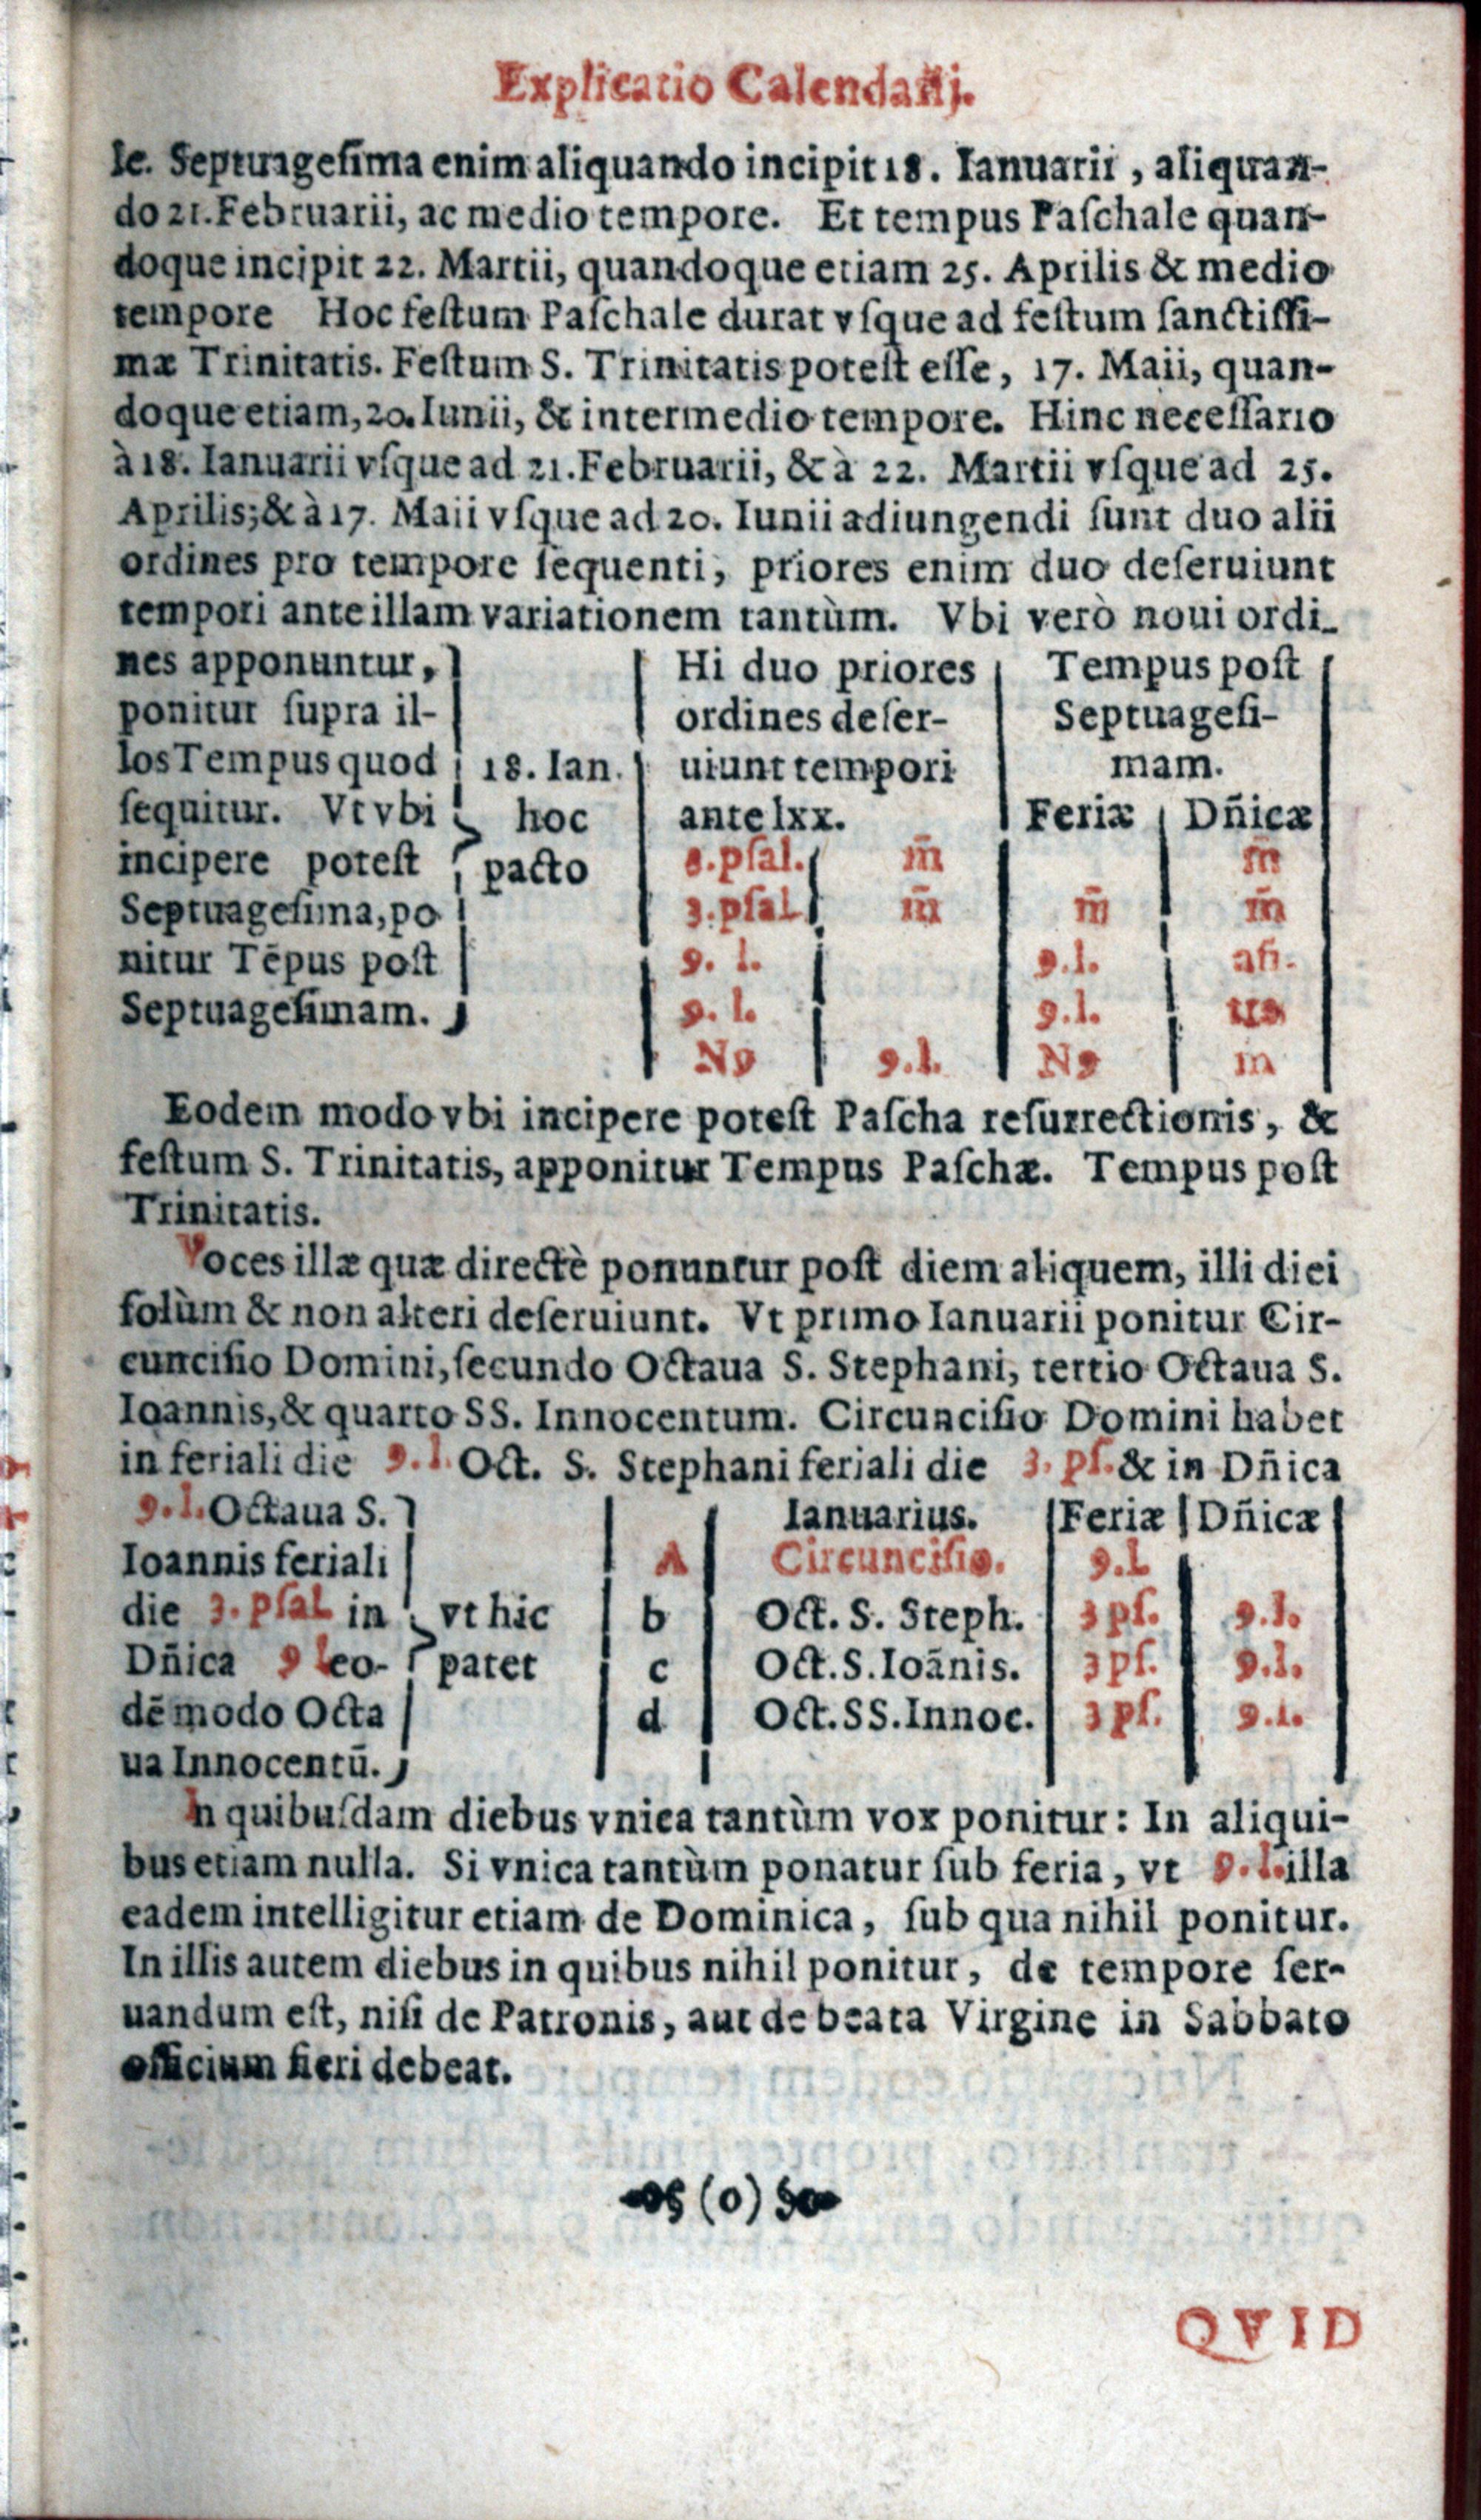 Explicatio Calendarij.
le. Septuagesima enim aliquando incipit 18. Ianuarii, aliquan-
do 21. Februarii, ac medio tempore. Et tempus Paſchale quan-
doque incipit 22. Martii, quandoque etiam 25. Aprilis & medio
tempore Hoc feſtum Paſchale durat vſque ad feſtum ſanctiſſi-
mæ Trinitatis. Feſtum S. Trinitatis poteſt eſſe, 17. Maii, quan-
doque etiam, 20. Iunii, & intermedio tempore. Hinc neceſſario
à 18. Ianuarii vſque ad 21. Februarii, & à 22. Martii vſque ad 25.
Aprilis; & à 17. Maii vſque ad 20. Iunii adiungendi ſunt duo alii
ordines pro tempore ſequenti, priores enim duo deſeruiunt
tempori ante illam variationem tantùm. Vbi verò noui ordi-
nes apponuntur,
ponitur ſupra il-
los Tempus quod
ſequitur. Vt vbi
incipere poteſt
Septuageſima, po
nitur Tẽpus poſt
Septuageſimam.
18. Ian.
hoc
pacto
Hi duo priores | Tempus poſt
ordines deſer- | Septuageſi-
uiunt tempori | mam.
ante lxx. | Feriæ | Dñicæ
8. pſal. | m̃ | | m̃
3. pſal. | m̃ | m̃ | m̃
9. l. | | 9. l. | añ.
9. l. | | 9. l.
N9 | 9. l. | N9 | m
Eodem modo vbi incipere poteſt Paſcha reſurrectionis, &
feſtum S. Trinitatis, apponitur Tempus Paſchæ. Tempus poſt
Trinitatis.
Voces illæ quæ directè ponuntur poſt diem aliquem, illi diei
ſolùm & non alteri deſeruiunt. Vt primo Ianuarii ponitur Cir-
cunciſio Domini, ſecundo Octaua S. Stephani, tertio Octaua S.
Ioannis, & quarto SS. Innocentum. Circunciſio Domini habet
in feriali die 9. l. Oct. S. Stephani feriali die 3. pſ. & in Dñica
9. l. Octaua S.
Ioannis feriali
die 3. pſal. in
Dñica 9 l eo-
dẽ modo Octa
ua Innocentũ.
vt hic
patet
Ianuarius. | Feriæ | Dñicæ
A | Circunciſio. | 9. l.
b | Oct. S. Steph. | 3 pſ. | 9. l.
c | Oct. S. Ioãnis. | 3 pſ. | 9. l.
d | Oct. SS. Innoc. | 3 pſ. | 9. l.
In quibuſdam diebus vnica tantùm vox ponitur: In aliqui-
bus etiam nulla. Si vnica tantùm ponatur ſub feria, vt 9. l. illa
eadem intelligitur etiam de Dominica, ſub qua nihil ponitur.
In illis autem diebus in quibus nihil ponitur, de tempore ſer-
uandum eſt, niſi de Patronis, aut de beata Virgine in Sabbato
officium fieri debeat.
(o)
QVID